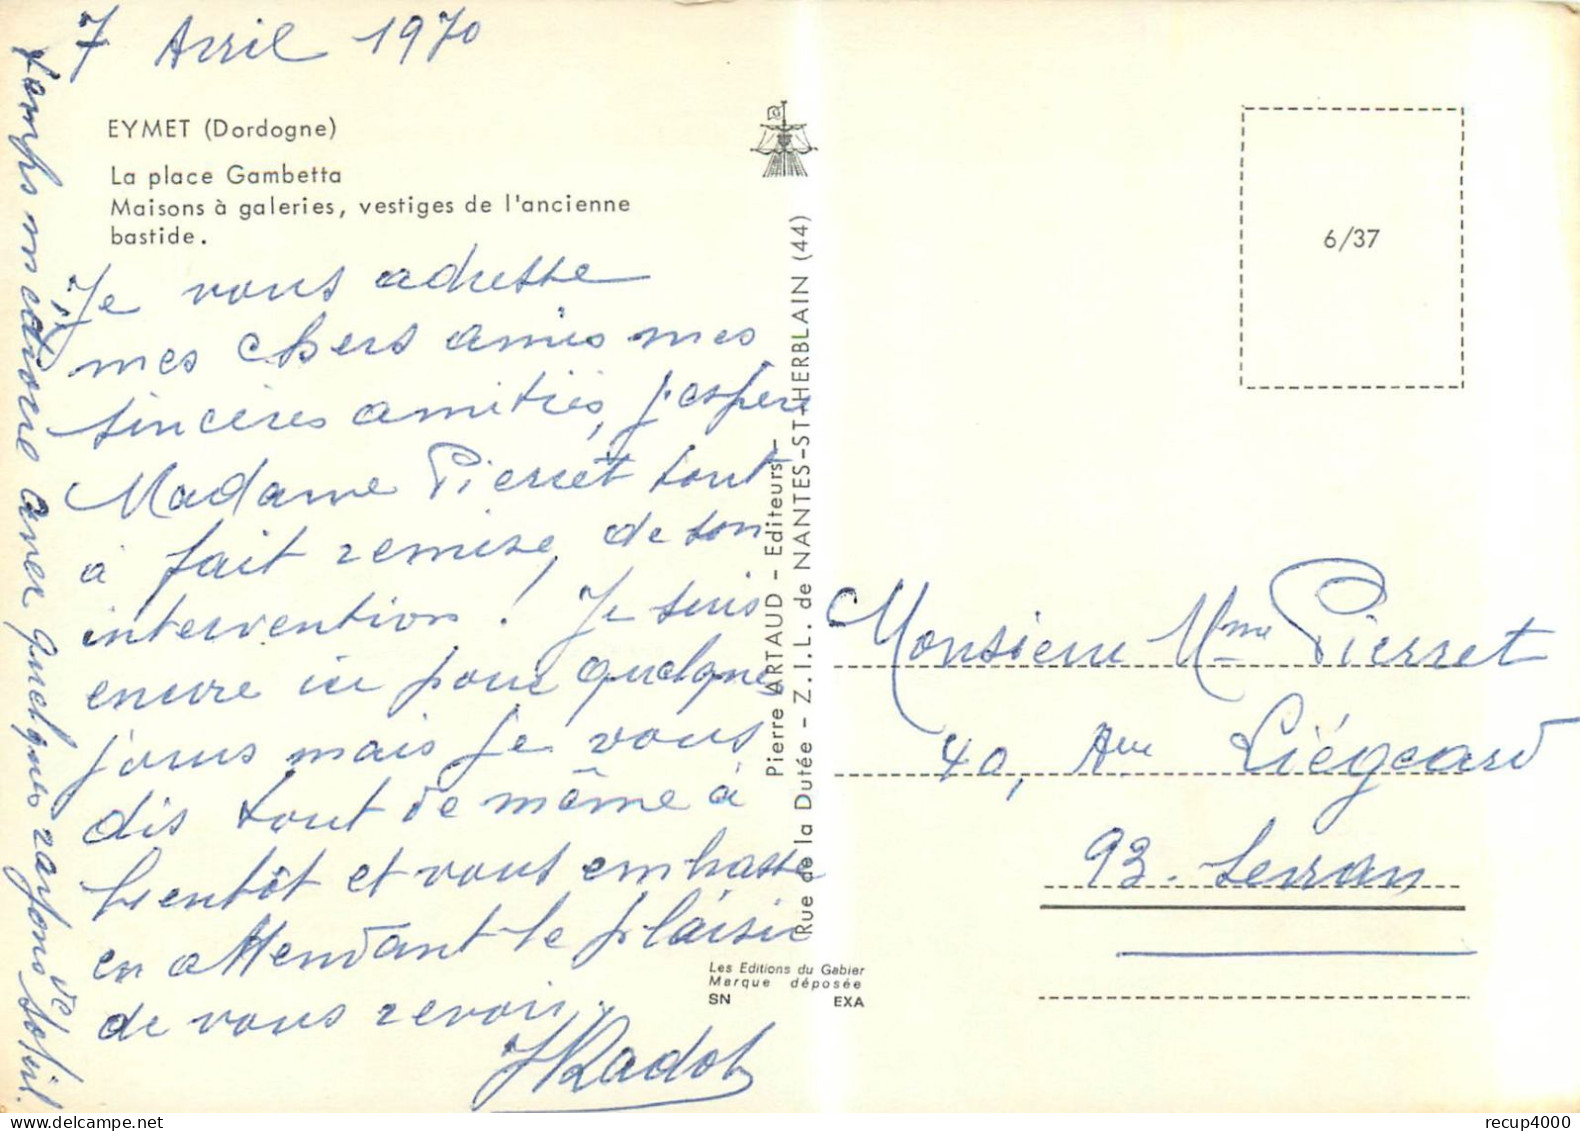 7 Avril 1970
EYMET (Dordogne)
La place Gambetta
Maisons à galeries, vestiges de l'ancienne
bastide.
Je vous adresse
mes chers amis mes
sincères amitiés, j'espère
Madame Pierret tout
à fait remise, de son
intervention! Je suis
encore ici pour quelques
jours mais je vous
dis tout de même à
bientôt et vous embrasse
en attendant le plaisir
de vous revoir.
JRadot
temps médiocre avec quelques rayons de soleil.
Pierre ARTAUD - Editeurs -
Rue de la Dutée - Z.I.L. de NANTES-ST-HERBLAIN (44)
Les Editions du Gabier
Marque déposée
SN EXA
6/37
Monsieur Mme Pierret
40, Ave Liégeard
93. Sevran
recup4000